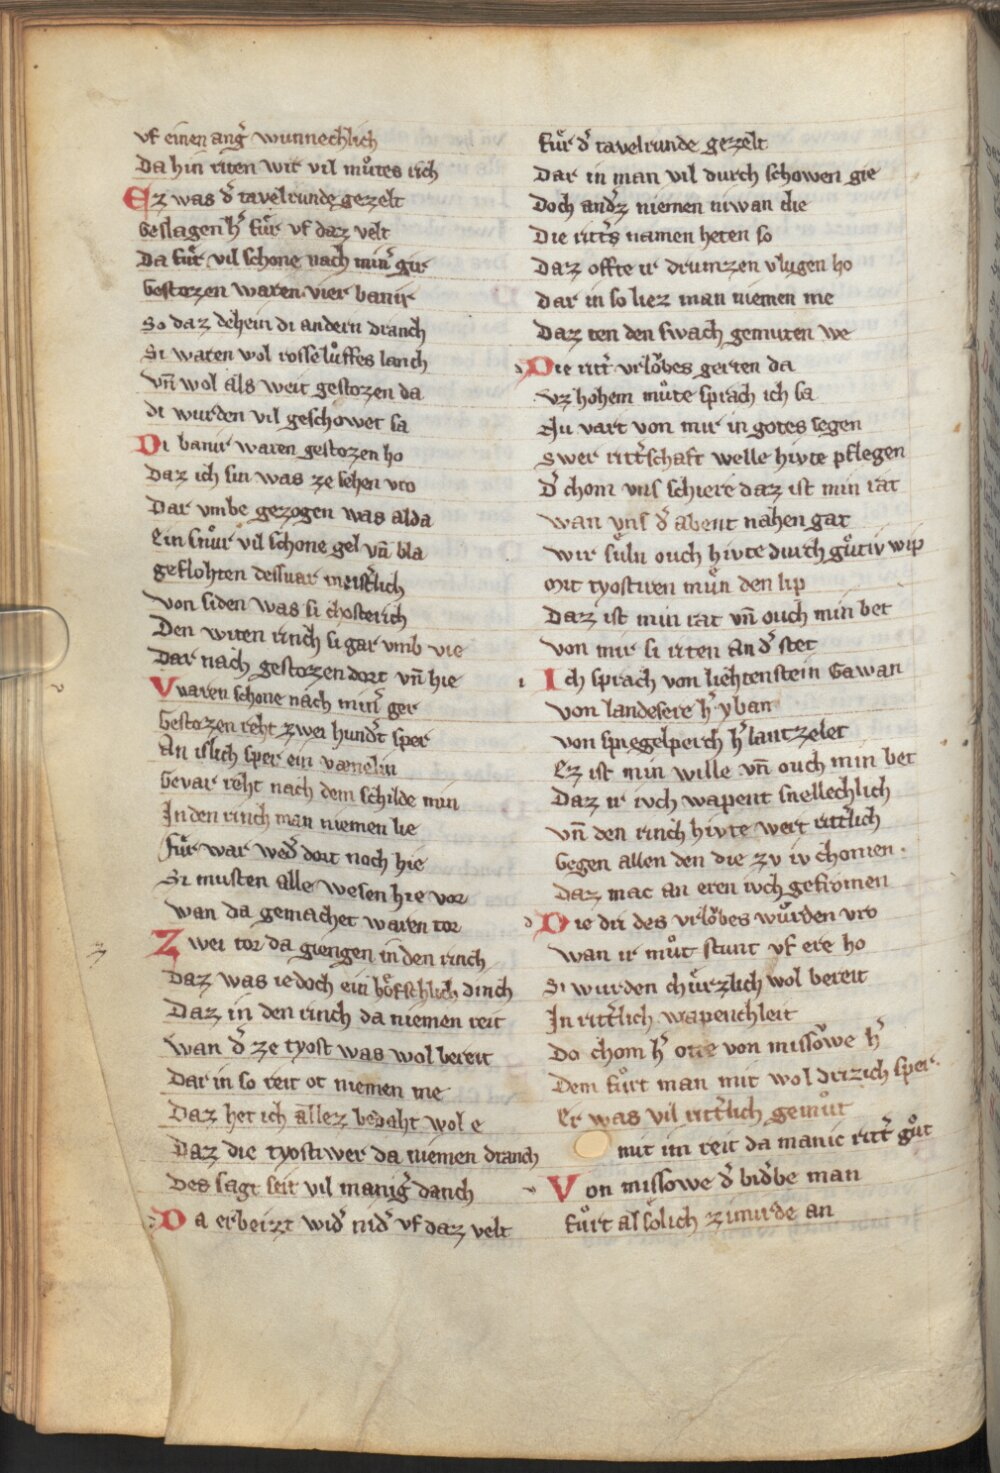 vf einen ang̃ wunnechlich
Da hin riten wir vil muͦtes rich
Ez was d̃ tavelrunde gezelt
Geslagen h̃ fuͤr vf daz velt
Da fuͤr vil schone nach min̄ gir
Gestozen waren vier banir
So daz dehein di andern dranch
Si waren wol rosseluͦffes lanch
vn̄ wol als weit gestozen da
di wurden vil geschowet sa
Di banir waren gestozen ho
Daz ich sin was ze sehen vro
Dar vmbe gezogen was alda
Ein snuͦr vil schone gel vn̄ bla
geflohten deswar meist̃lich
von siden was si chosterich
Den witen rinch si gar vmb vie
Dar nach gestozen dort vn̄ hie
Vvaren schone nach min̄ ger
Gestozen reht zwei hund̃t sper
An islich sper ein vænelin
Gevar reht nach dem schilde min
In den rinch man niemen lie
Fuͤr war wed̃ dort noch hie
Si musten alle wesen hie vor
wan da gemachet waren tor
Zwei tor da giengen in den rinch
Daz was iedoch ein hoͤfschlich dinch
Daz in den rinch da niemen reit
wan d̃ ze tyost was wol bereit
Dar in so reit ot niemen me
Daz het ich allez bedaht wol e
Daz die tyostiwer da niemen dranch
Des sagt seit vil manig̃ danch
Da erbeizt wid̃ nid̃ vf daz velt
fuͤr d̃ tavelrunde gezelt
Dar in man vil durch schowen gie
Doch and̃z niemen niwan die
Die ritt̃s namen heten so
Daz offte ir drumzen vlugen ho
Dar in so liez man niemen me
Daz ten den swach gemuten we
Die ritt̃ vrloͮbes gerten da
vz hohem muͦte sprach ich sa
Nu vart von mir in gotes segen
Swer ritt̃schaft welle hivte pflegen
d̃ chom vns schiere daz ist min rat
wan vns d̃ abent nahen gat
wir suͤln ouch hivte durch guͦtiv wip
Mit tyostiren muͤn den lip
Daz ist min rat vn̄ ouch min bet
von mir si riten an d̃ stet
Ich sprach von liehtenstein Gawan
von landesere h̃ yban
von spiegelperch h̃ lantzelet
Ez ist min wille vn̄ ouch min bet
Daz ir ivch wapent snellechlich
vn̄ den rinch hivte wert ritt̃lich
Gegen allen den die zv iv chomen
Daz mac an eren ivch gefromen
Die dri des vrloͮbes wuͦrden vro
wan ir muͦt stunt vf ere ho
Si wurden chuͤrzlich wol bereit
In ritt̃lich wapenchleit
Do chom h̃ otte von missowe h̃
Dem fuͦrt man mit wol drizich sper
Er was vil ritt̃lich gemuͦt
mit im reit da manic ritt̃ guͦt
Von missowe d̃ bid̃be man
fuͦrt al soͤlich zimirde an